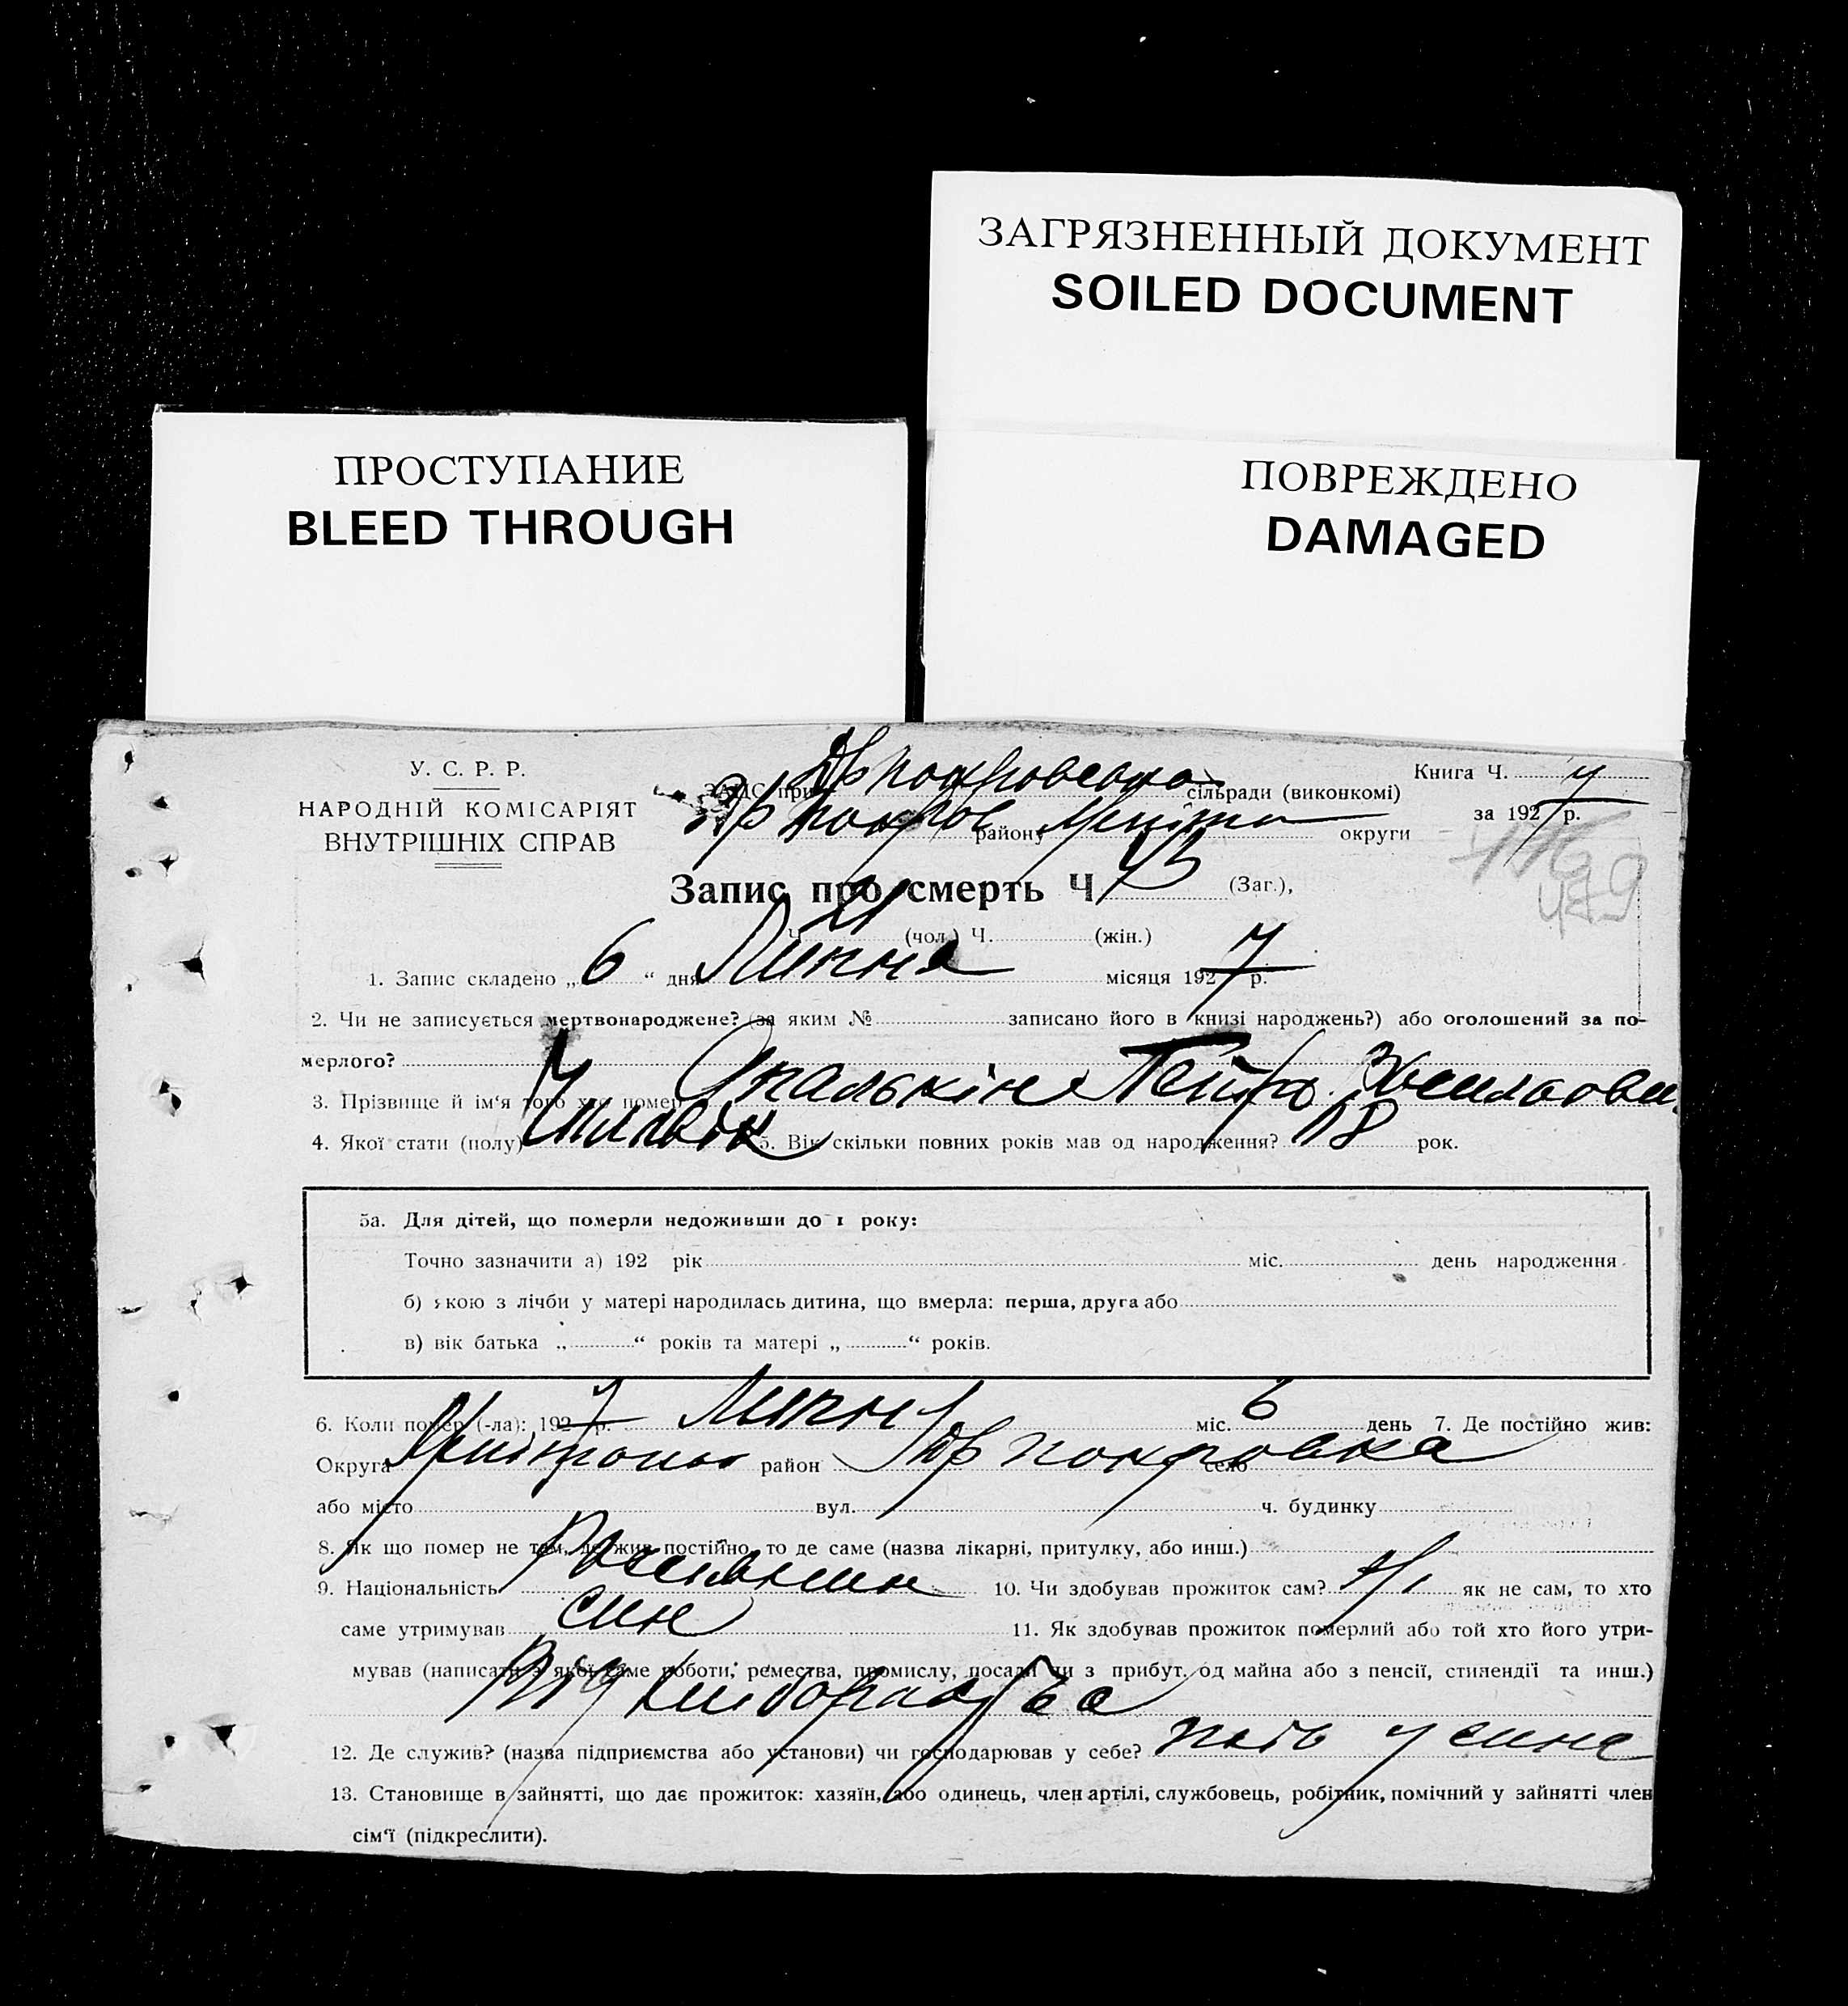 ЗАГРЯЗНЕННЫЙ ДОКУМЕНТ
SOILED DOCUMENT
ПРОСТУПАНИЕ
BLEED THROUGH
ПОВРЕЖДЕНО
DAMAGED
У. С. Р. Р.
НАРОДНІЙ КОМІСАРІЯТ
ВНУТРІШНІХ СПРАВ
ЗАГС при сільради (виконкомі)
району округи
Книга Ч. 7
за 1927 р.
Запис про смерть Ч. (Заг.),
Ч. 21 (чол.) Ч. (жін.)
479
1. Запис складено „6“ дня Липня місяця 1927 р.
2. Чи не записується мертвонароджене? (за яким № записано його в книзі народжень?) або оголошений за по-
мерлого?
3. Прізвище й ім‘я того хто помер Опалькін Петро
4. Якої стати (полу) Чоловік 5. Вік скільки повних років мав од народження? рок.
5а. Для дітей, що померли недоживши до 1 року:
Точно зазначити а) 192 рік міс. день народження
б) якою з лічби у матері народилась дитина, що вмерла: перша, друга або
в) вік батька „ “ років та матері „ “ років.
6. Коли помер (-ла): 1927 р. Липня міс. 6 день 7. Де постійно жив:
Округа район покровка село
або місто вул. ч. будинку
8. Як що помер не там, де жив постійно, то де саме (назва лікарні, притулку, або инш.)
9. Національність 10. Чи здобував прожиток сам? Ні як не сам, то хто
саме утримував син 11. Як здобував прожиток померлий або той хто його утри-
мував (написати з якої саме роботи, ремества, промислу, посади чи з прибут. од майна або з пенсії, стипендії та инш.)
Від
12. Де служив? (назва підприємства або установи) чи господарював у себе? у сина
13. Становище в зайнятті, що дає прожиток: хазяїн, або одинець, член артілі, службовець, робітник, помічний у зайнятті член
сім‘ї (підкреслити).